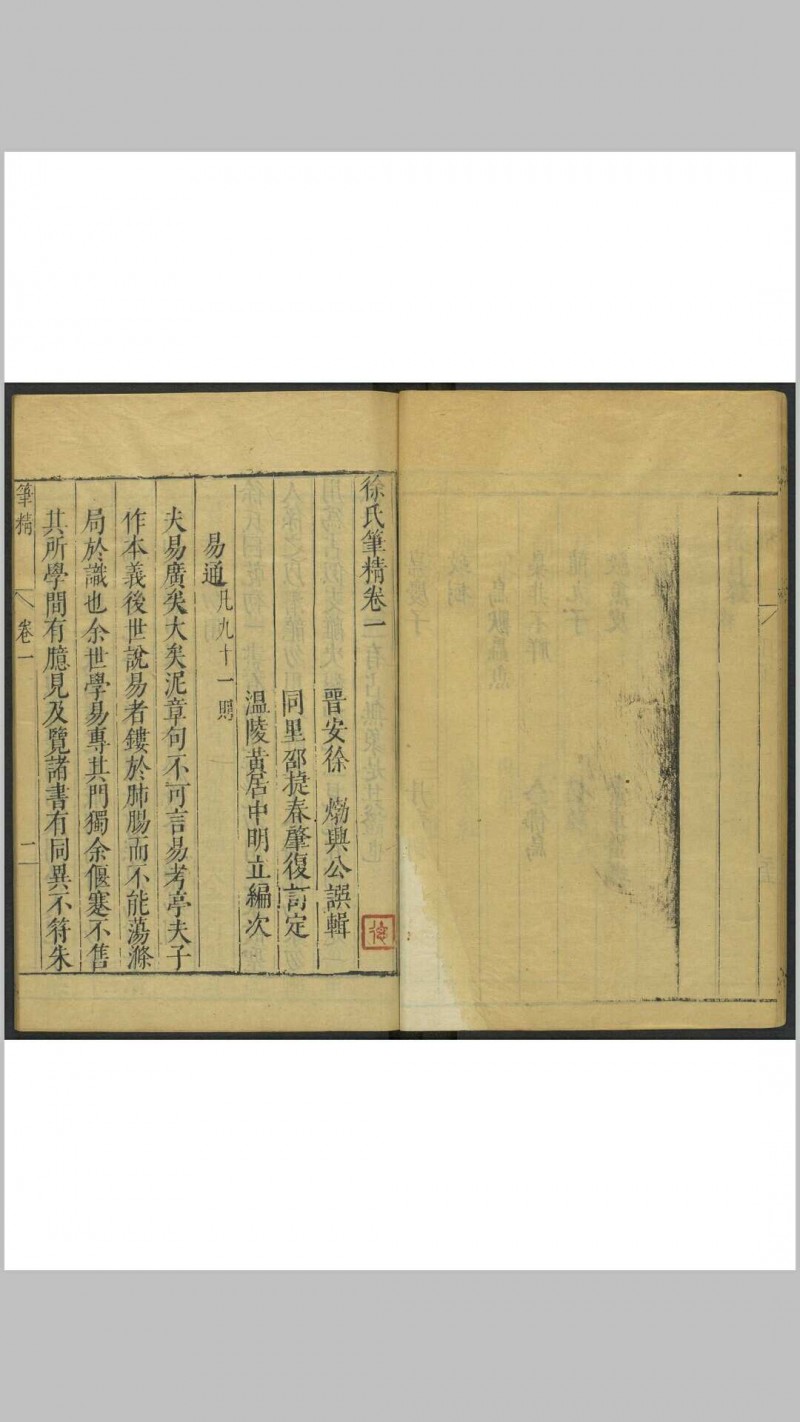 徐氏筆精卷一
晉安徐𤊹興公譔輯
同里邵捷春肇復訂定
温陵黃居中明立編次
易通凡九十一則
夫易廣矣大矣泥章句不可言易考亭夫子
作本義後世說易者鏤於肺腸而不能蕩滌
局於識也余世學易專其門獨余偃蹇不售
其所學間有臆見及覽諸書有同異不符朱
筆精 卷一 一